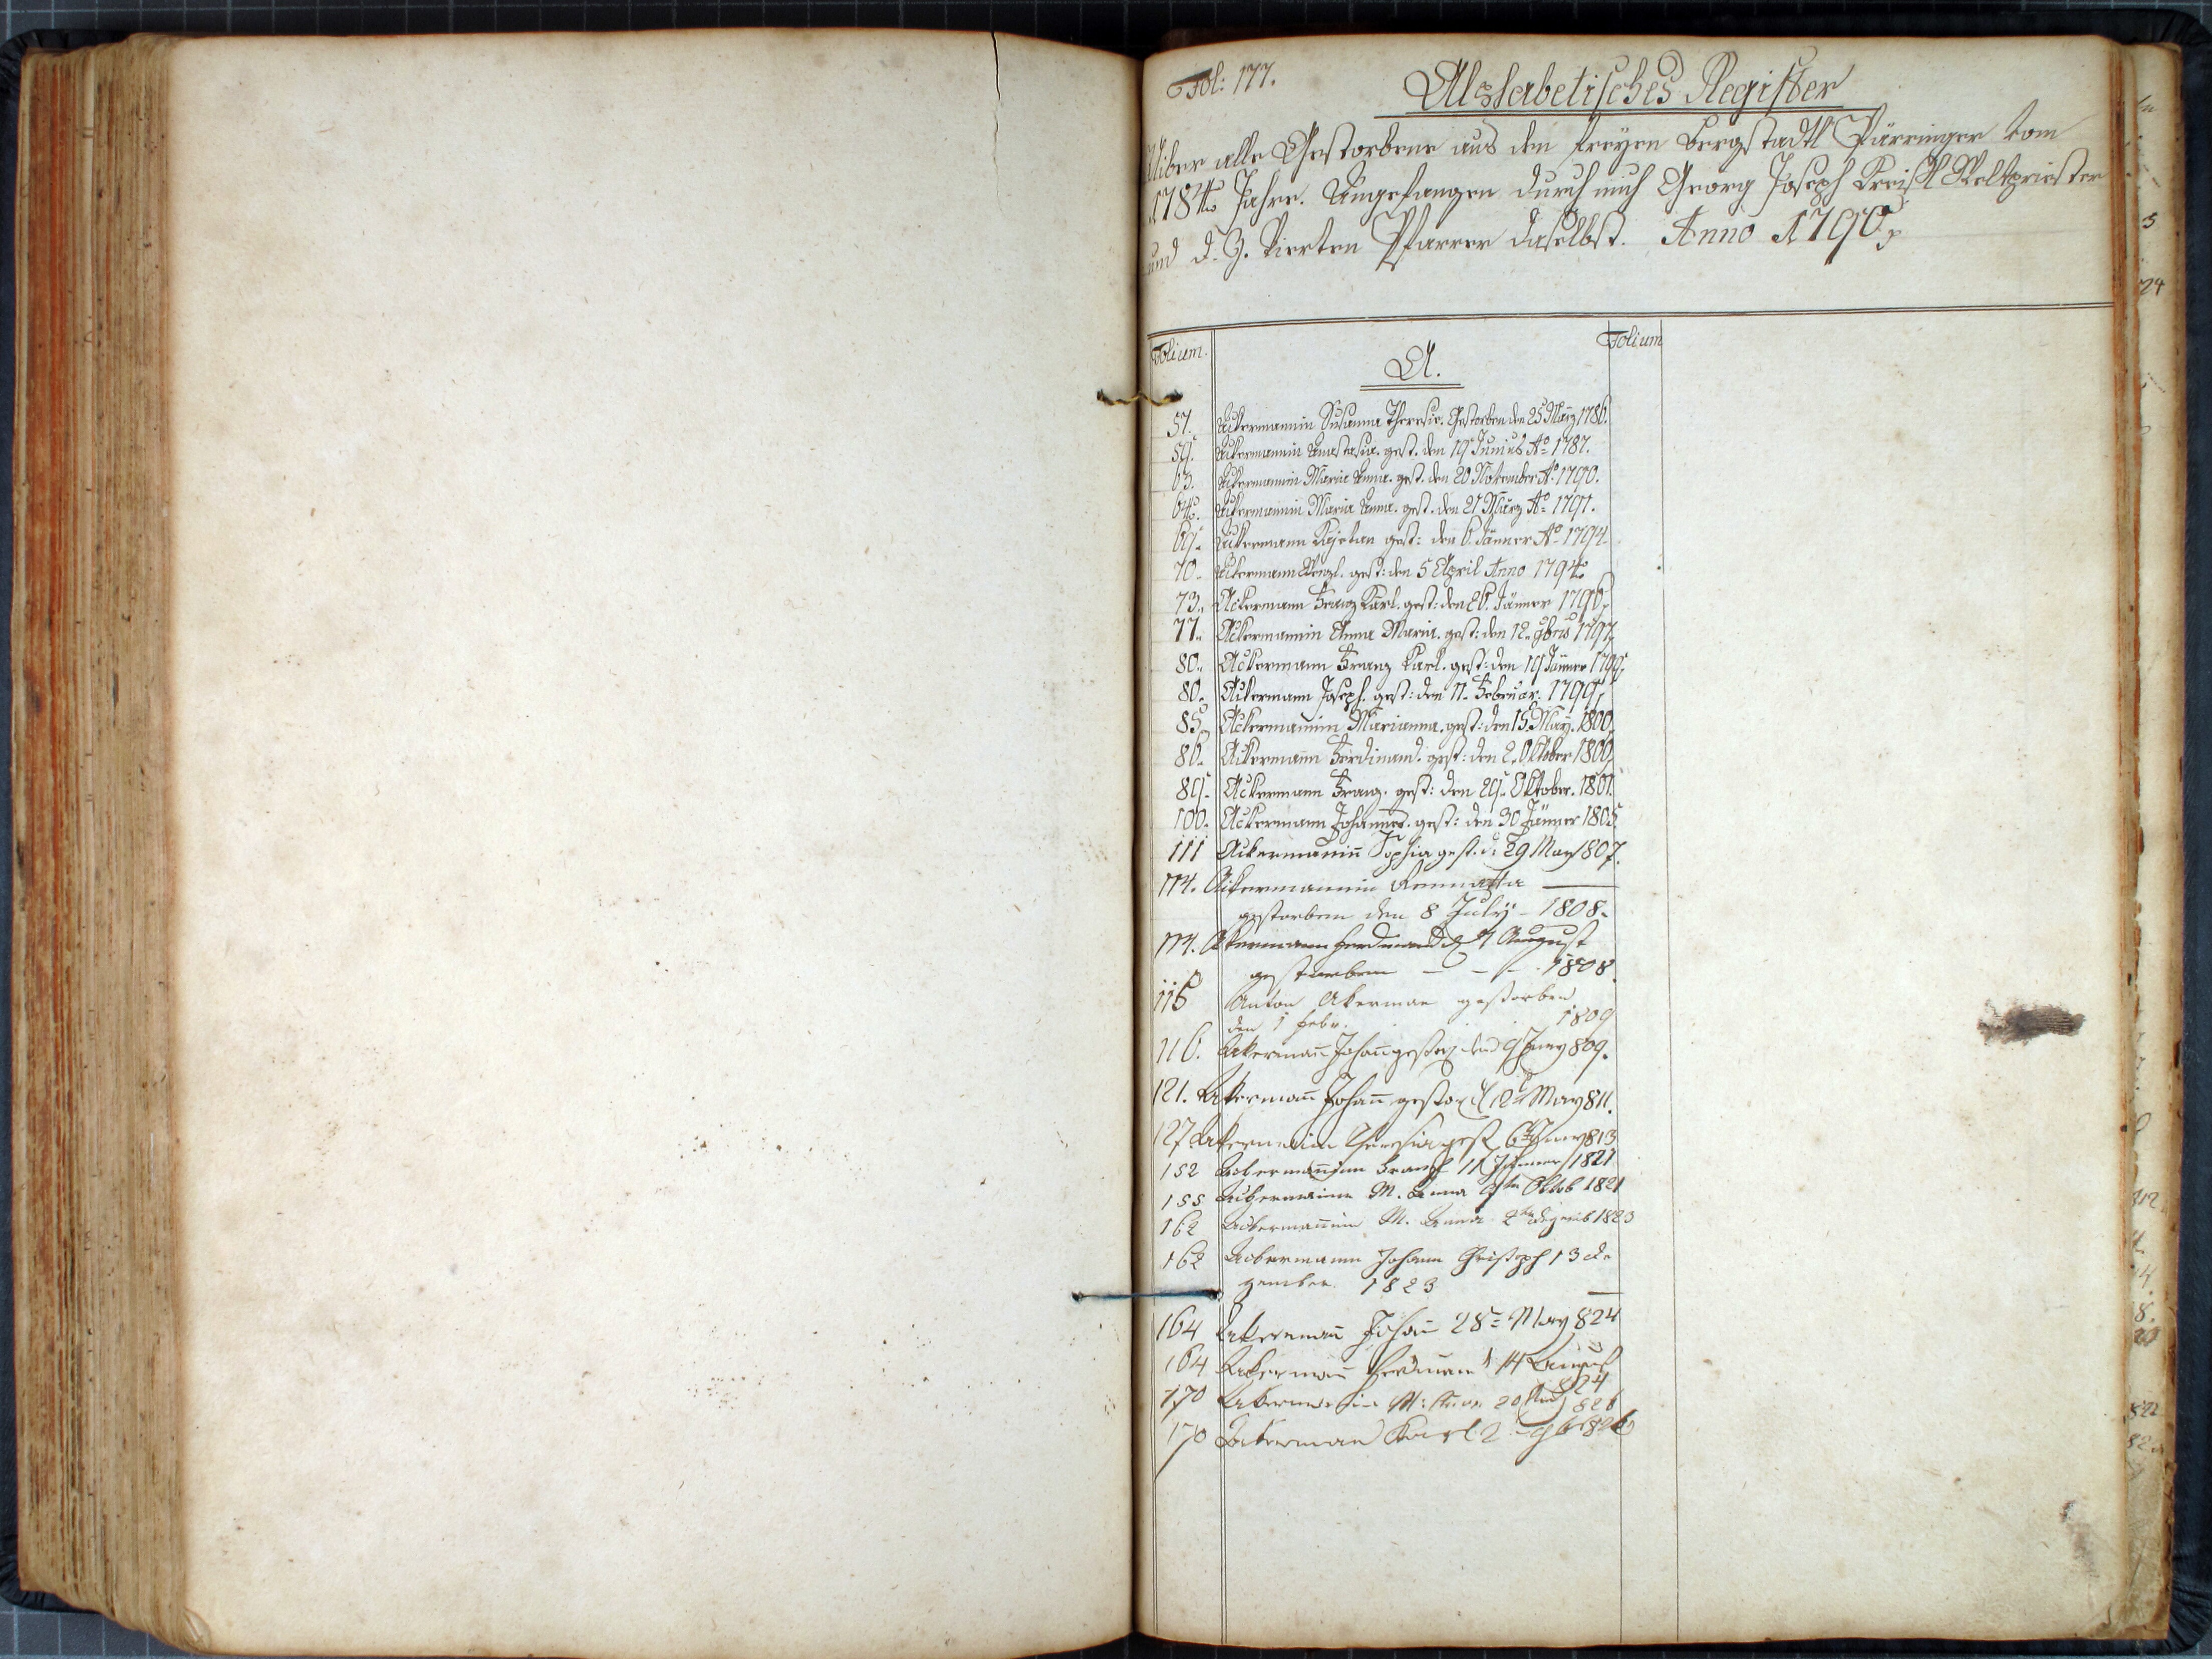 Fol: 177.
Alphabetisches Register
Uiber alle Gestorbene aus den freyen Bergstadtl Päringer vom
1784 Jahre. Angefangen durch mich Georg Joseph Weltpriester
und d. Z. Vierten Pfarrer daselbst. Anno 1796
Folium. Folium
A.
57. Ackermannin Susanna Theresia. Gestorben den 25 März 1786.
59. Ackermannin Anastasia. gest. den 19 Junius Ao 1787.
63. Ackermannin Maria Anna. gest. den 20 November Ao 1790.
64. Ackermannin Maria Anna. gest. den 21 März Ao 1791.
69. Ackermann Kajetan gest: den 6. Jänner Ao 1794
70. Ackermann Wenzl. gest: den 5 April Anno 1794
73. Ackermann Franz Karl. gest: den 26. Jänner 1796
77. Ackermannin Anna Maria. gest: den 12. 9bris 1797
80. Ackermann Franz Karl. gest: den 19 Jänner 1799
80. Ackermann Joseph. gest: den 11. Februar. 1799
85. Ackermannin Marianna. gest: den 15. May. 1800
86. Ackermann Ferdinand. gest: den 2. Oktober 1800
89. Ackermann Franz. gest: den 29. Oktober. 1801.
100. Ackermann Johannes. gest: den 30 Jänner 1805
111 Ackermaninn Sophia gest. d: 29 May 807.
114. Ackermannin
gestorben den 8 July - 1808.
114. Akermann Ferdinand August
gestorben - - - 1808.
115 Anton Akerman gestorben
den 1 Febr. 1809
116. Akermann Johann 809.
121. Akermann Johann gestor. d 12 May 811.
127 Akermanin Theresia gest. 813
152 Ackermannin 11 Jänner 1821
155 Ackermanin M. Anna Oktob 1821
162 Ackermannin M. Anna 2ten Dezemb 1823
162 Ackermann Johann Christoph 13 De
zember. 1823
164 Akermann Johann 28 May 824
164 Akermann Ferdinand 14 August
824
170 Akermanin M: Anna 20 826
170 Ackerman Karl 2 826